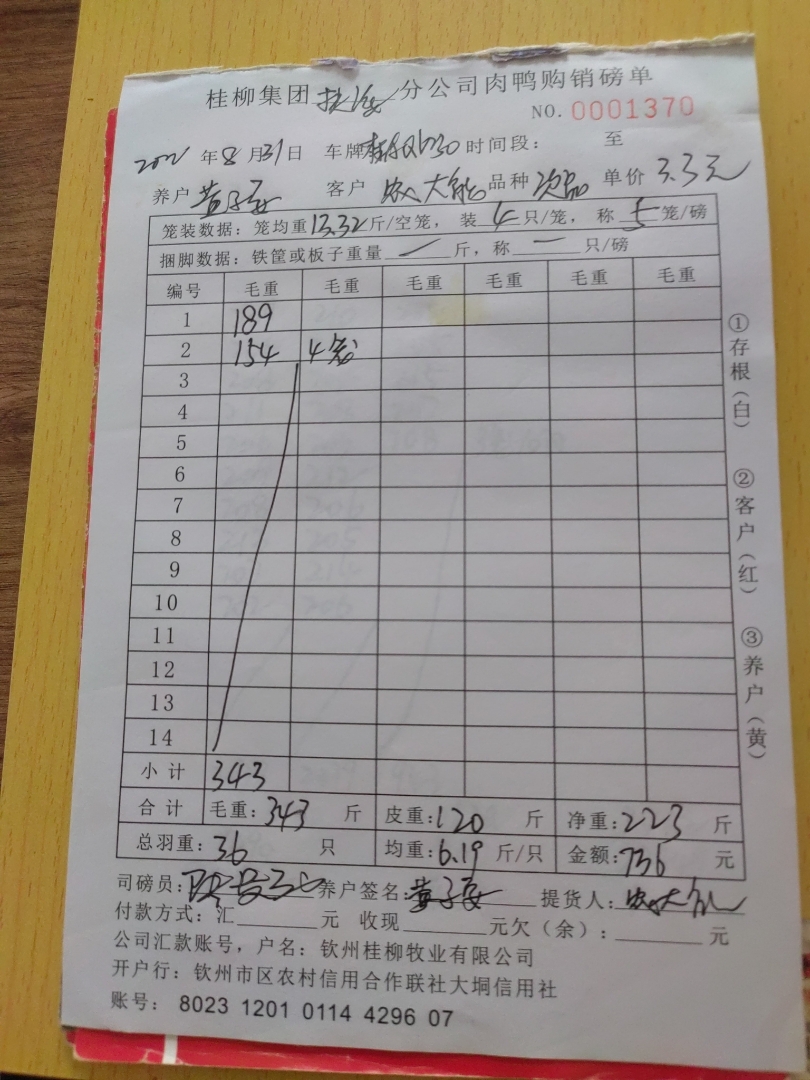 桂柳集团 分公司肉鸭购销磅单
NO. 0001370
年8月31日 车牌 时间段： 至
养户 黄子安 客户 农大能 品种 次品 单价 3.3元
笼装数据：笼均重13.32斤/空笼，装4只/笼，称5笼/磅
捆脚数据：铁筐或板子重量 — 斤，称 — 只/磅
编号 毛重 毛重 毛重 毛重 毛重 毛重
1 189
2 154 4笼
3
4
5
6
7
8
9
10
11
12
13
14
小计 343
合计 毛重：343 斤 皮重：120 斤 净重：223 斤
总羽重：36 只 均重：6.19 斤/只 金额：736 元
司磅员： 养户签名：黄子安 提货人：农大能
付款方式：汇 元 收现 元欠（余）： 元
公司汇款账号，户名：钦州桂柳牧业有限公司
开户行：钦州市区农村信用合作联社大垌信用社
账号：8023 1201 0114 4296 07
①存根（白） ②客户（红） ③养户（黄）